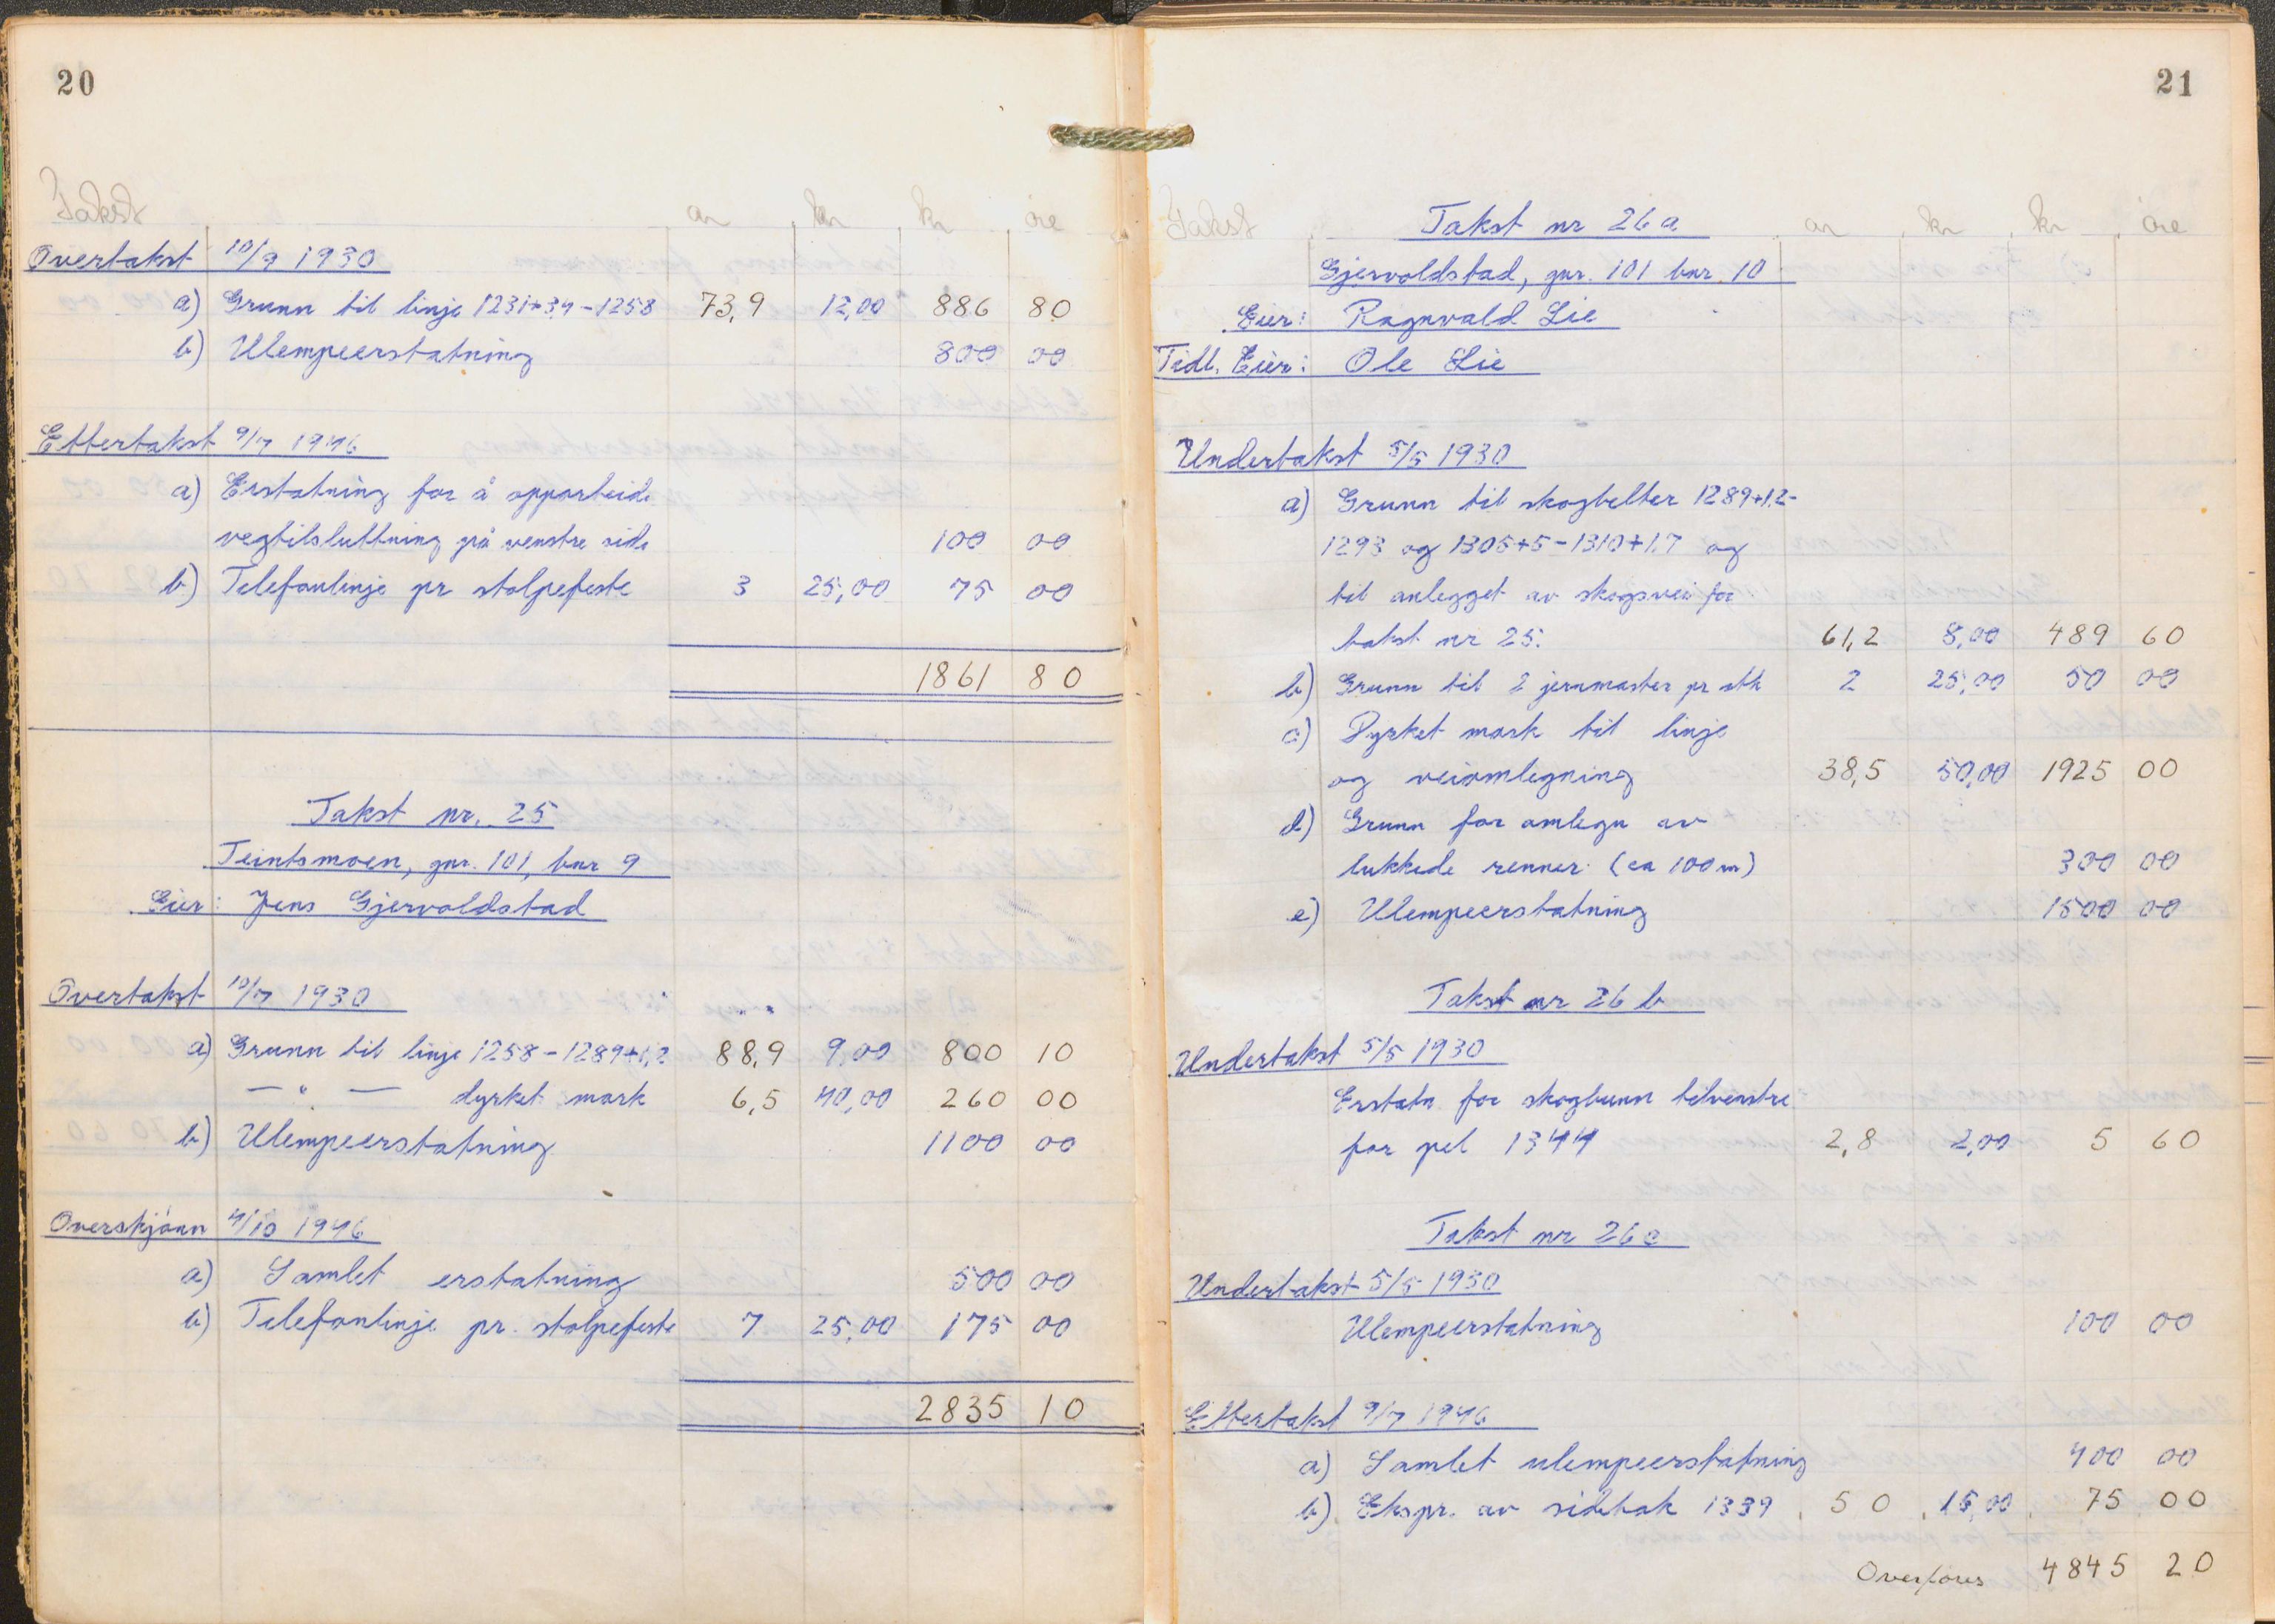 20
Takst ar kr kr øre
Overtakst 10/9 1930
a) Grunn til linje 1231+3,4-1258 73,9 12,00 886 80
b) Ulempeerstatning 800 00
Ettertakst 9/7 1946
a) Erstatning for å opparbeide
vegtilslutning på venstre side 100 00
b) Telefonlinje pr stolpefeste 3 25,00 75 00
1861 80
Takst nr. 25
Teintsmoen, gnr. 101, bnr 9
Eier: Jens Gjervoldstad
Overtakst 10/7 1930
a) Grunn til linje 1258-1289+1,2 88,9 9,00 800 10
— " — dyrket mark 6,5 40,00 260 00
b) Ulempeerstatning 1100 00
Overskjønn 4/10 1946
a) Samlet erstatning 500 00
b) Telefonlinje pr. stolpefeste 7 25,00 175 00
2835 10
21
Takst Takst nr 26a ar kr kr øre
Gjervoldstad, gnr. 101 bnr. 10
Eier: Ragnvald Lie
Tidl. Eier: Ole Lie
Undertakst 5/5 1930
a) Grunn til skogbelter 1289+1,2-
1293 og 1305+5-1310+1,7 og
til anlegget av skogsvei for
takst nr 25. 61,2 8,00 489 60
b) Grunn til 2 jernmaster pr stk 2 25,00 50 00
c) Dyrket mark til linje
og veiomlegning 38,5 50,00 1925 00
d) Grunn for omlegn av
lukkede renner (ca 100 m) 300 00
e) Ulempeerstatning 1500 00
Takst nr 26 b
Undertakst 5/5 1930
Erstatn for skogbunn tilvenstre
for pel 1344 2,8 2,00 5 60
Takst nr 26c
Undertakst 5/5 1930
Ulempeerstatning 100 00
Ettertakst 9/7 1946
a) Samlet ulempeerstatning 400 00
b) Ekspr. av sidetak 1339 5 0 15,00 75 00
Overføres 4845 20